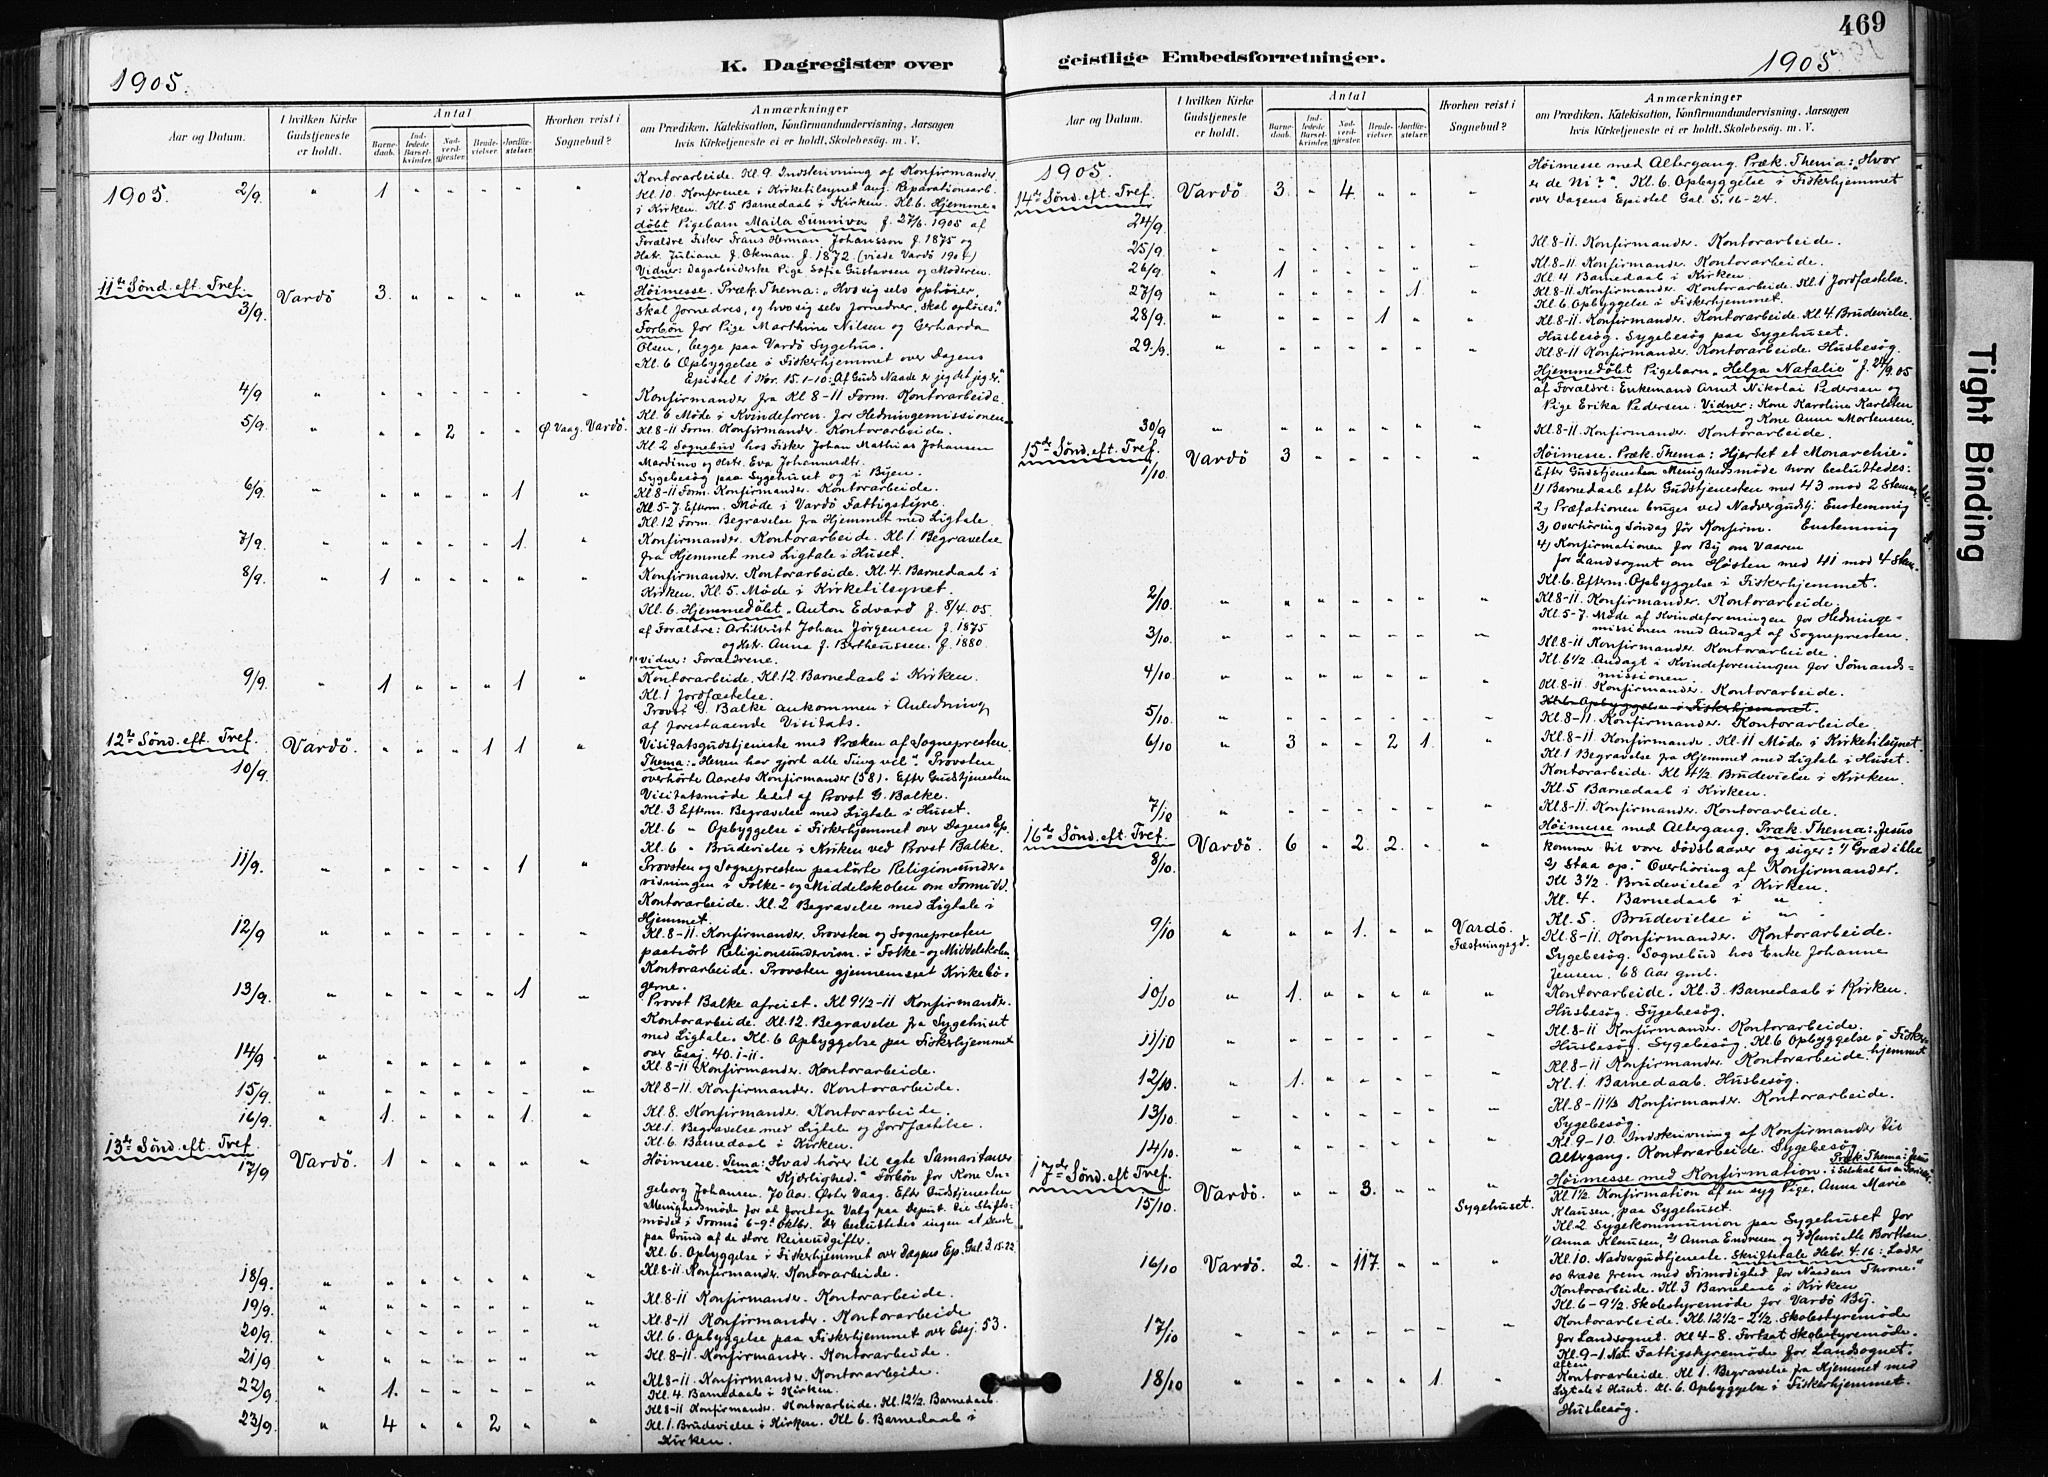 469
K. Dagregister over geistlige Embedsforretninger.
1905.
1905.
Aar og Datum.
I hvilken Kirke Gudstjeneste er holdt.
Antal
Barnedaab.
Indledede Barselkvinder.
Nadverdgjester.
Brudevielser.
Jordfæstelser.
Hvorhen reist i Sognebud?
Anmærkninger
om Prædiken, Katekisation, Konfirmandundervisning, Aarsagen
hvis Kirketjeneste ei er holdt, Skolebesøg. m. V.
1905. 2/9. " 1 " " " " "
Kontorarbeide. Kl. 9. Indskrivning af Konfirmander.
Kl. 10. Konference i Kirketilsynet ang. Reparationsarb.
i Kirken. Kl. 5 Barnedaab i Kirken. Kl. 6. Hjemme-
døbt Pigebarn Maila Sunniva f. 27/6. 1905 af
Forældre Fisker Frans Herman Johansson f. 1875 og
Hstr. Juliane f. Okman. f. 1872. (viede Vardø 1901)
Vidner: Dagarbeiderske Pige Sofie Gustavsen og Moderen.
11te Sønd. eft. Tref. 3/9. Vardø 3. " " " " "
Høimesse. Præk. Thema: "Hvo sig selv ophøier,
skal fornedres, og hvo sig selv fornedrer, skal ophøies."
Forbøn for Pige Marthine Nilsen og Gerharda
Olsen, begge paa Vardø Sygehus.
Kl. 6 Opbyggelse i Fiskerhjemmet over Dagens
Epistel 1 Kor. 15. 1-10: "Af Guds Naade er jeg det jeg er."
4/9 " " " " " " "
Konfirmander fra Kl 8-11 Form. Kontorarbeide.
Kl. 6 Møde i Kvindeforen. for Hedningemissionen
5/9. " " " 2 " " Ø Vaag. Vardø.
Kl. 8-11 Form. Konfirmander. Kontorarbeide.
Kl 2 Sognebud hos Fisker Johan Mathias Johansen
Mardimo og Hstr. Eva Johannesdtr.
Sygebesøg paa Sygehuset og i Byen.
6/9. " " " " " 1 "
Kl 8-11 Form. Konfirmander. Kontorarbeide.
Kl. 5-7. Efterm. Møde i Vardø Fattigstyre.
Kl. 12 Form. Begravelse fra Hjemmet med Ligtale.
7/9. " " " " " 1. "
Konfirmander. Kontorarbeide. Kl. 1. Begravelse
fra Hjemmet med Ligtale i Huset.
8/9. " 1 " " " " "
Konfirmander. Kontorarbeide. Kl. 4. Barnedaab i
Kirken. Kl. 5. Møde i Kirketilsynet.
Kl. 6. Hjemmedøbt "Anton Edvard f. 8/4. 05.
af Forældre: Artillerist Johan Jørgensen f. 1875
og Hstr. Anna f. Bertheussen. f. 1880.
Vidner: Forældrene.
9/9. " 1 " " " 1 "
Kontorarbeide. Kl. 12 Barnedaab i Kirken.
Kl. 1 Jordfæstelse.
Provst G. Balke ankommen i Anledning
af forestaaende Visitats.
12te Sønd. eft. Tref. 10/9. Vardø. " " " 1 1 "
Visitatsgudstjeneste med Præken af Sognepresten.
Thema: "Herren har gjort alle Ting vel". Provsten
overhørte Aarets Konfirmander (58). Efter Gudstjenesten
Visitatsmøde ledet af Provst G. Balke.
Kl. 3 Efterm. Begravelse med Ligtale i Huset.
Kl. 6 " Opbyggelse i Fiskerhjemmet over Dagens Ep.
Kl. 6 " Brudevielse i Kirken ved Provst Balke.
11/9. " " " " " 1 "
Provsten og Sognepresten paahørte Religionsunder-
visningen i Folke- og Middelskolen om Formidd.
Kontorarbeide. Kl. 2 Begravelse med Ligtale i
Hjemmet.
12/9 " " " " " " "
Kl. 8-11. Konfirmander. Provsten og Sognepresten
paahørt Religionsundervisn. i Folke- og Middelskolen.
Kontorarbeide. Provsten gjennemseet Kirkebø-
gerne.
13/9. " " " " " 1 "
Provst Balke afreist. Kl 9 1/2-11 Konfirmander.
Kontorarbeide. Kl. 12. Begravelse fra Sygehuset
med Ligtale. Kl. 6 Opbyggelse paa Fiskerhjemmet
over Esaj. 40. 1-11.
14/9. " " " " " " "
Kl. 8-11 Konfirmander. Kontorarbeide.
15/9. " " " " " " "
Kl. 8-11. Konfirmander. Kontorarbeide.
16/9. " 1. " " " 1. "
Kl. 8. Konfirmander. Kontorarbeide.
Kl. 1. Begravelse med Ligtale og Jordfæstelse.
Kl. 6. Barnedaab i Kirken.
13de Sønd. eft. Tref. 17/9. Vardø. 1 " " " " "
Høimesse. Tema: "Hvad hører til egte Samaritaner
Kjærlighed." Forbøn for Kone In-
geborg Johansen. 70 Aar. Øster Vaag. Efter Gudstjenesten
Menighedsmøde for at foretage Valg paa Deput. til Stifts-
mødet i Tromsø 6-9de Oktbr. Der besluttedes ingen at sende
paa Grund af de store Reiseudgifter.
Kl. 6. Opbyggelse i Fiskerhjemmet over Dagens Ep. Gal. 3. 15-22
18/9. " " " " " " "
Kl. 8-11. Konfirmander. Kontorarbeide.
19/9. " " " " " " "
Kl. 8-11 Konfirmander. Kontorarbeide.
20/9. " " " " " " "
Kl. 8-11 Konfirmander. Kontorarbeide
Kl. 6. Opbyggelse paa Fiskerhjemmet over Esaj. 53.
21/9. " " " " " " "
Kl. 8-11. Konfirmander. Kontorarbeide.
22/9. " 1. " " " " "
Kl. 8-11. Konfirmander. Kontorarbeide.
Kl. 4. Barnedaab i Kirken.
23/9. " 4 " " 2 " "
Kl 8-11 Konfirmander. Kontorarbeide. Kl. 12 1/2. Barnedaab.
Kl. 1. Brudevielse i Kirken. Kl 6. Barnedaab i
Kirken.
Aar og Datum.
I hvilken Kirke Gudstjeneste er holdt.
Antal
Barnedaab.
Indledede Barselkvinder.
Nadverdgjester.
Brudevielser.
Jordfæstelser.
Hvorhen reist i Sognebud?
Anmærkninger
om Prædiken, Katekisation, Konfirmandundervisning, Aarsagen
hvis Kirketjeneste ei er holdt, Skolebesøg. m. V.
1905.
14de Sønd. eft. Tref. 24/9. Vardø 3. " 4. " " "
Høimesse med Altergang. Præk. Thema: "Hvor
er de Ni?". Kl. 6. Opbyggelse i Fiskerhjemmet
over Dagens Epistel Gal. 5. 16-24.
25/9. " " " " " " "
Kl. 8-11. Konfirmander. Kontorarbeide.
26/9. " 1 " " " " "
Kl. 8-11 Konfirmander. Kontorarbeide.
Kl. 4 Barnedaab i Kirken.
27/9. " " " " " 1. "
Kl. 8-11. Konfirmander. Kontorarbeide. Kl. 1 Jordfæstelse.
Kl. 6. Opbyggelse i Fiskerhjemmet.
28/9. " " " " 1 " "
Kl. 8-11. Konfirmander. Kontorarbeide. Kl. 4. Brudevielse.
Husbesøg. Sygebesøg paa Sygehuset.
29/9. " " " " " " "
Kl. 8-11 Konfirmander. Kontorarbeide. Husbesøg.
Hjemmedøbt Pigebarn "Helga Natalie" f. 24/9. 05
af Forældre: Enkemand Arnt Nikolai Pedersen og
Pige Erika Pedersen. Vidner: Kone Karoline Karlsten
og Kone Anna Mortensen.
30/9 " " " " " " "
Kl. 8-11. Konfirmander. Kontorarbeide.
15de Sønd. eft. Tref. 1/10. Vardø 3 " " " " "
Høimesse. Præk. Thema: "Hjertet et Monarchie."
Efter Gudstjenesten Menighedsmøde hvor besluttedes:
1) Barnedaab efter Gudstjenesten met 43 mod 2 Stemmer
2) Præfationen bruges ved Nadvergudstj. Enstemmig
3) Overhøring Søndag før Konfirm. Enstemmig
4) Konfirmationen for By om Vaaren
for Landsognet om Høsten med 41 mod 4 Stem.
Kl. 6. Efterm. Opbyggelse i Fiskerhjemmet.
2/10 " " " " " " "
Kl 8-11. Konfirmander. Kontorarbeide.
Kl. 5-7. Møde af Kvindeforeningen for Hedninge-
missionen med Andagt af Sognepresten.
3/10. " " " " " " "
Kl. 8-11 Konfirmander. Kontorarbeide.
Kl. 6 1/2. Andagt i Kvindeforeningen for Sømands-
missionen.
4/10. " " " " " " "
Kl. 8-11. Konfirmander. Kontorarbeide.
Kl. 6. Opbyggelse i Fiskerhjemmet.
5/10. " " " " " " "
Kl. 8-11. Konfirmander. Kontorarbeide.
6/10 " 3 " " 2 1. "
Kl. 8-11. Konfirmander. Kl. 11 Møde i Kirketilsynet.
Kl. 1 Begravelse fra Hjemmet med Ligtale i Huset.
Kontorarbeide. Kl 4 1/2. Brudevielse i Kirken.
Kl. 5 Barnedaab i Kirken.
7/10 " " " " " " "
Kl. 8-11. Konfirmander. Kontorarbeide.
16de Sønd. eft. Tref. 8/10. Vardø. 6 " 2. 2. " "
Høimesse med Altergang. Præk. Thema: "Jesus
kommer til vore Dødsbaarer og siger: 1) Græd ikke
2) Staa op." Overhøring af Konfirmander.
Kl 3 1/2. Brudevielse i Kirken.
Kl. 4. Barnedaab i "
Kl. 5. Brudevielse i "
9/10 " " " 1. " " Vardø. Fæstningsgd.
Kl. 8-11. Konfirmander. Kontorarbeide.
Sygebesøg. Sognebud hos Enke Johanne
Jensen, 68 Aar gml.
10/10 " 1. " " " " "
Kontorarbeide. Kl. 3. Barnedaab i Kirken.
Husbesøg. Sygebesøg.
11/10 " " " " " " "
Kl. 8-11 Konfirmander. Kontorarbeide.
Husbesøg. Sygebesøg. Kl. 6 Opbyggelse i Fisker-
hjemmet
12/10. " 1. " " " " "
Kl. 8-11 Konfirmander. Kontorarbeide.
Kl. 1. Barnedaab. Husbesøg.
13/10. " " " " " " "
Kl. 8-11 1/2 Konfirmander. Kontorarbeide.
Sygebesøg.
14/10 " " " " " " "
Kl. 9-10. Indskrivning af Konfirmander til
Altergang. Kontorarbeide. Sygebesøg.
17de Sønd. eft. Tref. 15/10. Vardø. " " 3. " " Sygehuset.
Høimesse med Konfirmation. Præk. Thema: Jesus
Kl 1 1/2. Konfirmation af en syg Pige, Anna Marie
Klausen, paa Sygehuset.
Kl. 2. Sygekommunion paa Sygehuset for
1) Anna Klausen, 2) Anna Endresen og 3) Henriette Borthen.
16/10 Vardø. 2. " 117. " " "
Kl. 10. Nadvergudstjeneste. Skriftetale Hebr. 4. 16: "Lader
os træde frem med Frimodighed for Naadens Throne."
Kontorarbeide. Kl. 3 Barnedaab i Kirken
Kl. 6-9 1/2. Skolestyremøde for Vardø By.
17/10 " " " " " " "
Kontorarbeide. Kl. 12 1/2-2 1/2. Skolestyremøde
for Landsognet. Kl 4-8. Fortsat Skolestyremøde.
Kl. 9-1. Nat. Fattigstyremøde for Landsognet.
aften
18/10 " " " " " 1. "
Kontorarbeide. Kl 1. Begravelse fra Hjemmet med
Ligtale i Huset. Kl. 6. Opbyggelse i Fiskerhjemmet.
Husbesøg.
Tight Binding